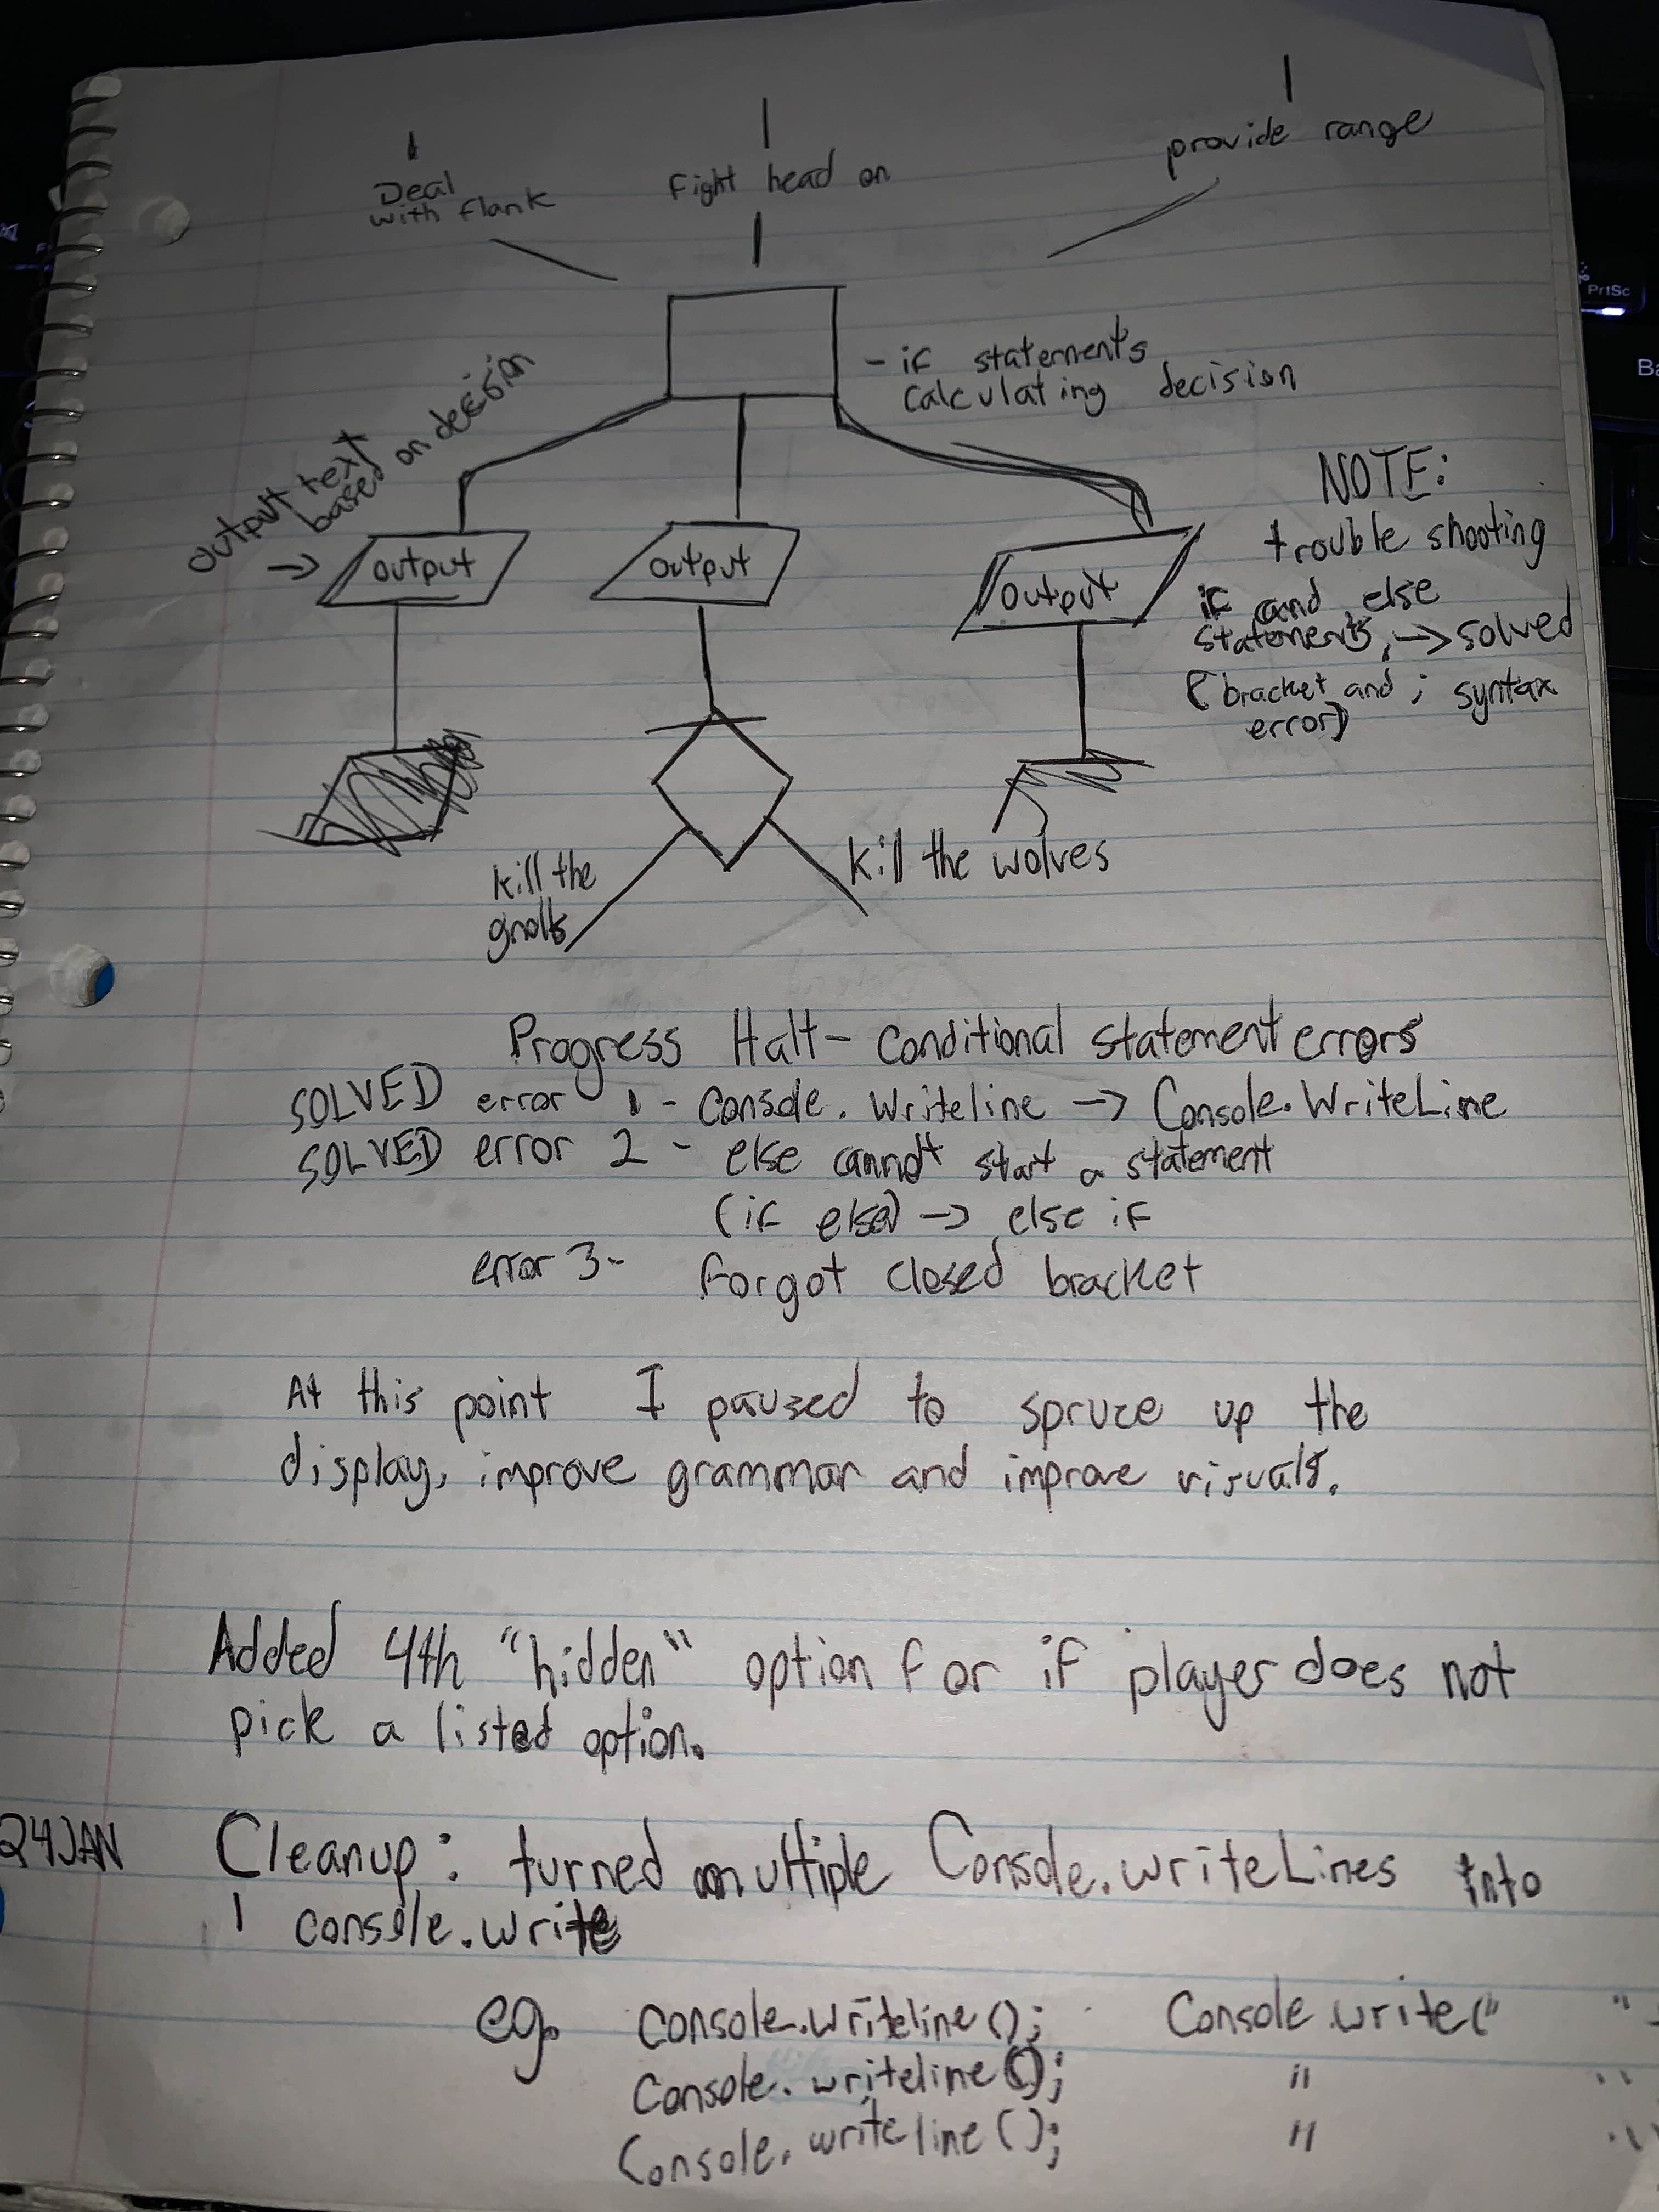 Deal
with flank
Fight head on
provide range
- if statements
calculating decision
output text
based on decision
→ output
output
output
NOTE:
trouble shooting
if and else
statements, → solved
(bracket and ; syntax
error)
kill the
gnolls
kill the wolves
Progress Halt - conditional statement errors
SOLVED error 1 - Console. Writeline → Console.WriteLine
SOLVED error 2 - else cannot start a statement
(if else) → else if
error 3 - forgot closed bracket
At this point I paused to spruce up the
display, improve grammar and improve visuals.
Added 4th "hidden" option for if player does not
pick a listed option.
24JAN Cleanup: turned multiple Console.writeLines into
1 console.write
eg. console.writeline(); Console.write(" "
Console.writeline(); " "
Console.writeline(); " "